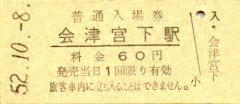 52.10.-8.
普通入場券
会津宮下駅
料金60円
発売当日1回限り有効
旅客車内に立ち入ることはできません。
入・会津宮下
小